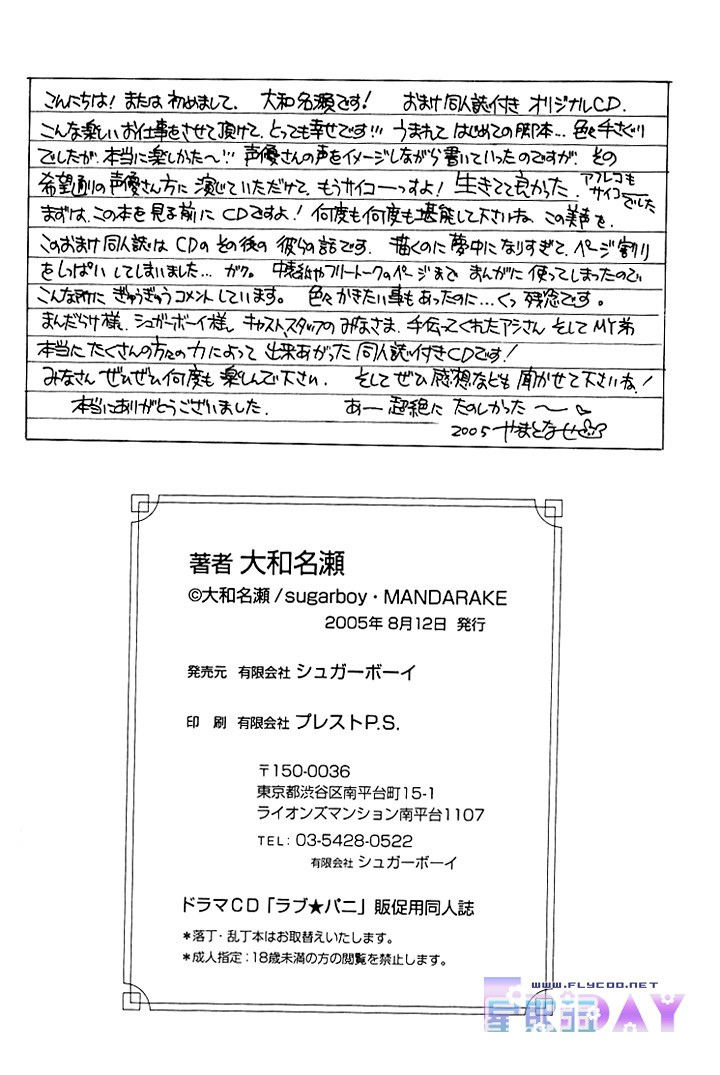 こんにちは！ または 初めまして、 大和名瀬です！ おまけ同人誌付き オリジナルCD.
こんな楽しいお仕事をさせて頂けて、とっても幸せです!!! うまれて はじめての脚本… 色々手さぐり
でしたが、本当に楽しかたへ!!! 声優さんの声をイメージしながら書いていったのですが、その
希望通りの声優さん方に 演じていただけて、もうサイコーーっすよ！ 生きてて良かった、アフレコも サイコーでした
まずは、この本を見る前に CDですよ！ 何度も何度も堪能して下さいね この美声を、
このおまけ同人誌は CDのその後の 彼らの話です、 描くのに夢中になりすぎて、ページ割り
をしっぱいしてしまいました… ガク。 中表紙やフリートークのページまで まんがに使ってしまったので
こんな所に ぎゅうぎゅうコメントしています。 色々かきたい事もあったのに…くっ 残念です。
まんだらけ様、シュガーボーイ様、キャスト、スタッフのみなさま、手伝ってくれたアシさん そして MY弟
本当に たくさんの方々の力によって 出来あがった 同人誌付きCDです！
みなさん ぜひぜひ何度も 楽しんで下さい、 そして ぜひ 感想なども 聞かせて下さいね！
本当にありがとうございました、 あー 超絶に たのしかった〜
2005 やまとなせ
著者 大和名瀬
©大和名瀬/sugarboy・MANDARAKE
2005年 8月12日 発行
発売元 有限会社 シュガーボーイ
印 刷 有限会社 プレストP.S.
〒150-0036
東京都渋谷区南平台町15-1
ライオンズマンション南平台1107
TEL: 03-5428-0522
有限会社 シュガーボーイ
ドラマCD「ラブ★パニ」販促用同人誌
＊落丁・乱丁本はお取替えいたします。
＊成人指定：18歳未満の方の閲覧を禁止します。
WWW.FLYCOO.NET
DAY